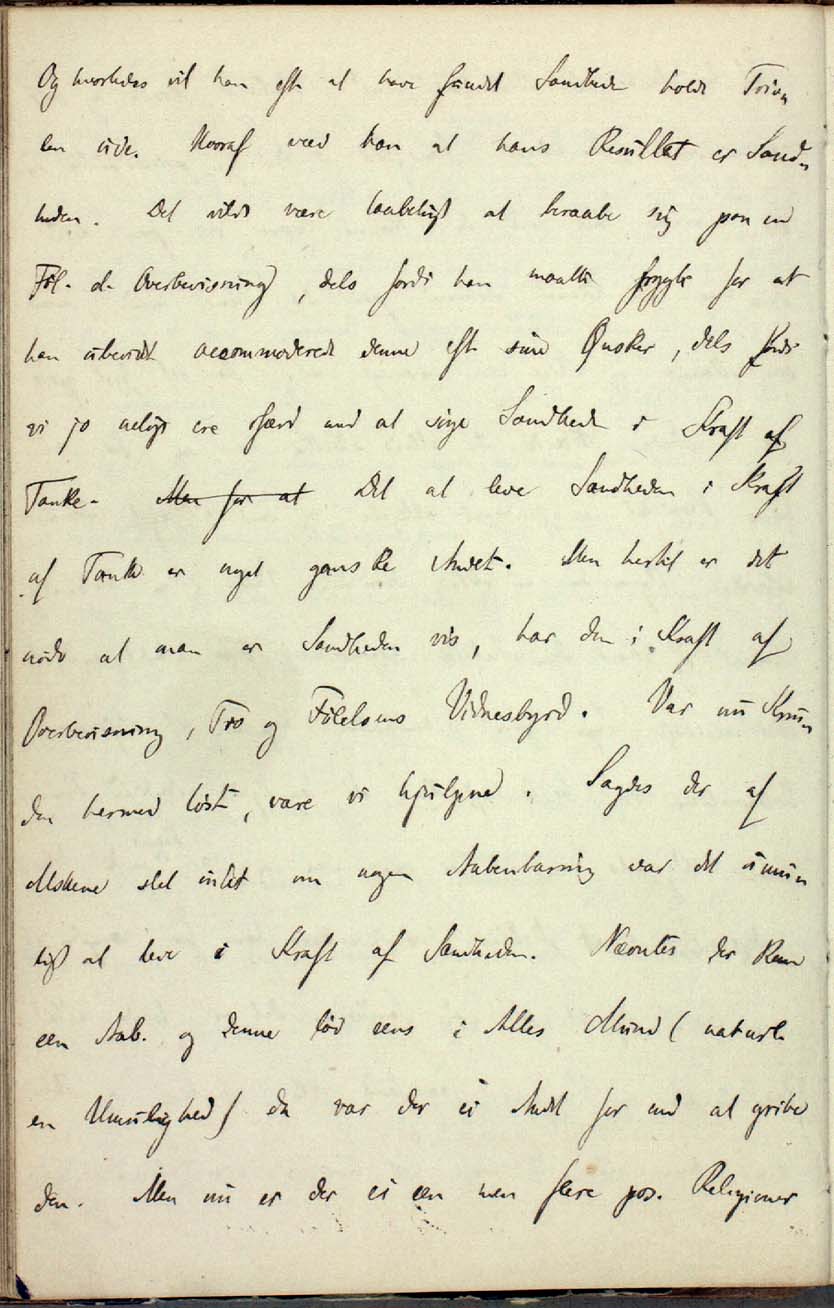 Og hvorledes vil han eft at have fundet Sandheden holde Tvivl
len ude. Hvoraf veed han at hans Resultat er Sand-
heden. Det vilde være taabeligt at beraabe sig paa en
Føl. d. Overbevisning, dels fordi han maatte frygte for at
han ubevidst accommoderede denne eft sine Ønsker, dels fordi
vi jo netop ere ifærd med at søge Sandheden i Kraft af
Tanke. Men for at Det at leve Sandheden i Kraft
af Tanke er noget ganske Andet. Men hertil er det
nødv at man er Sandheden vis, har den i Kraft af
Overbevisning, Tro og Følelsens Vidnesbyrd. Var nu Knu-
den hermed løst, vare vi hjulpne. Sagdes der af
Mskene slet intet om nogen Aabenbaring var det umu-
ligt at leve i Kraft af Sandheden. Nævntes der kun
een Aab. og denne lød eens i Alles Mund (naturl.
en Umulighed) da var der ei Andet for end at gribe
den. Men nu er der ei een men flere pos. Religioner